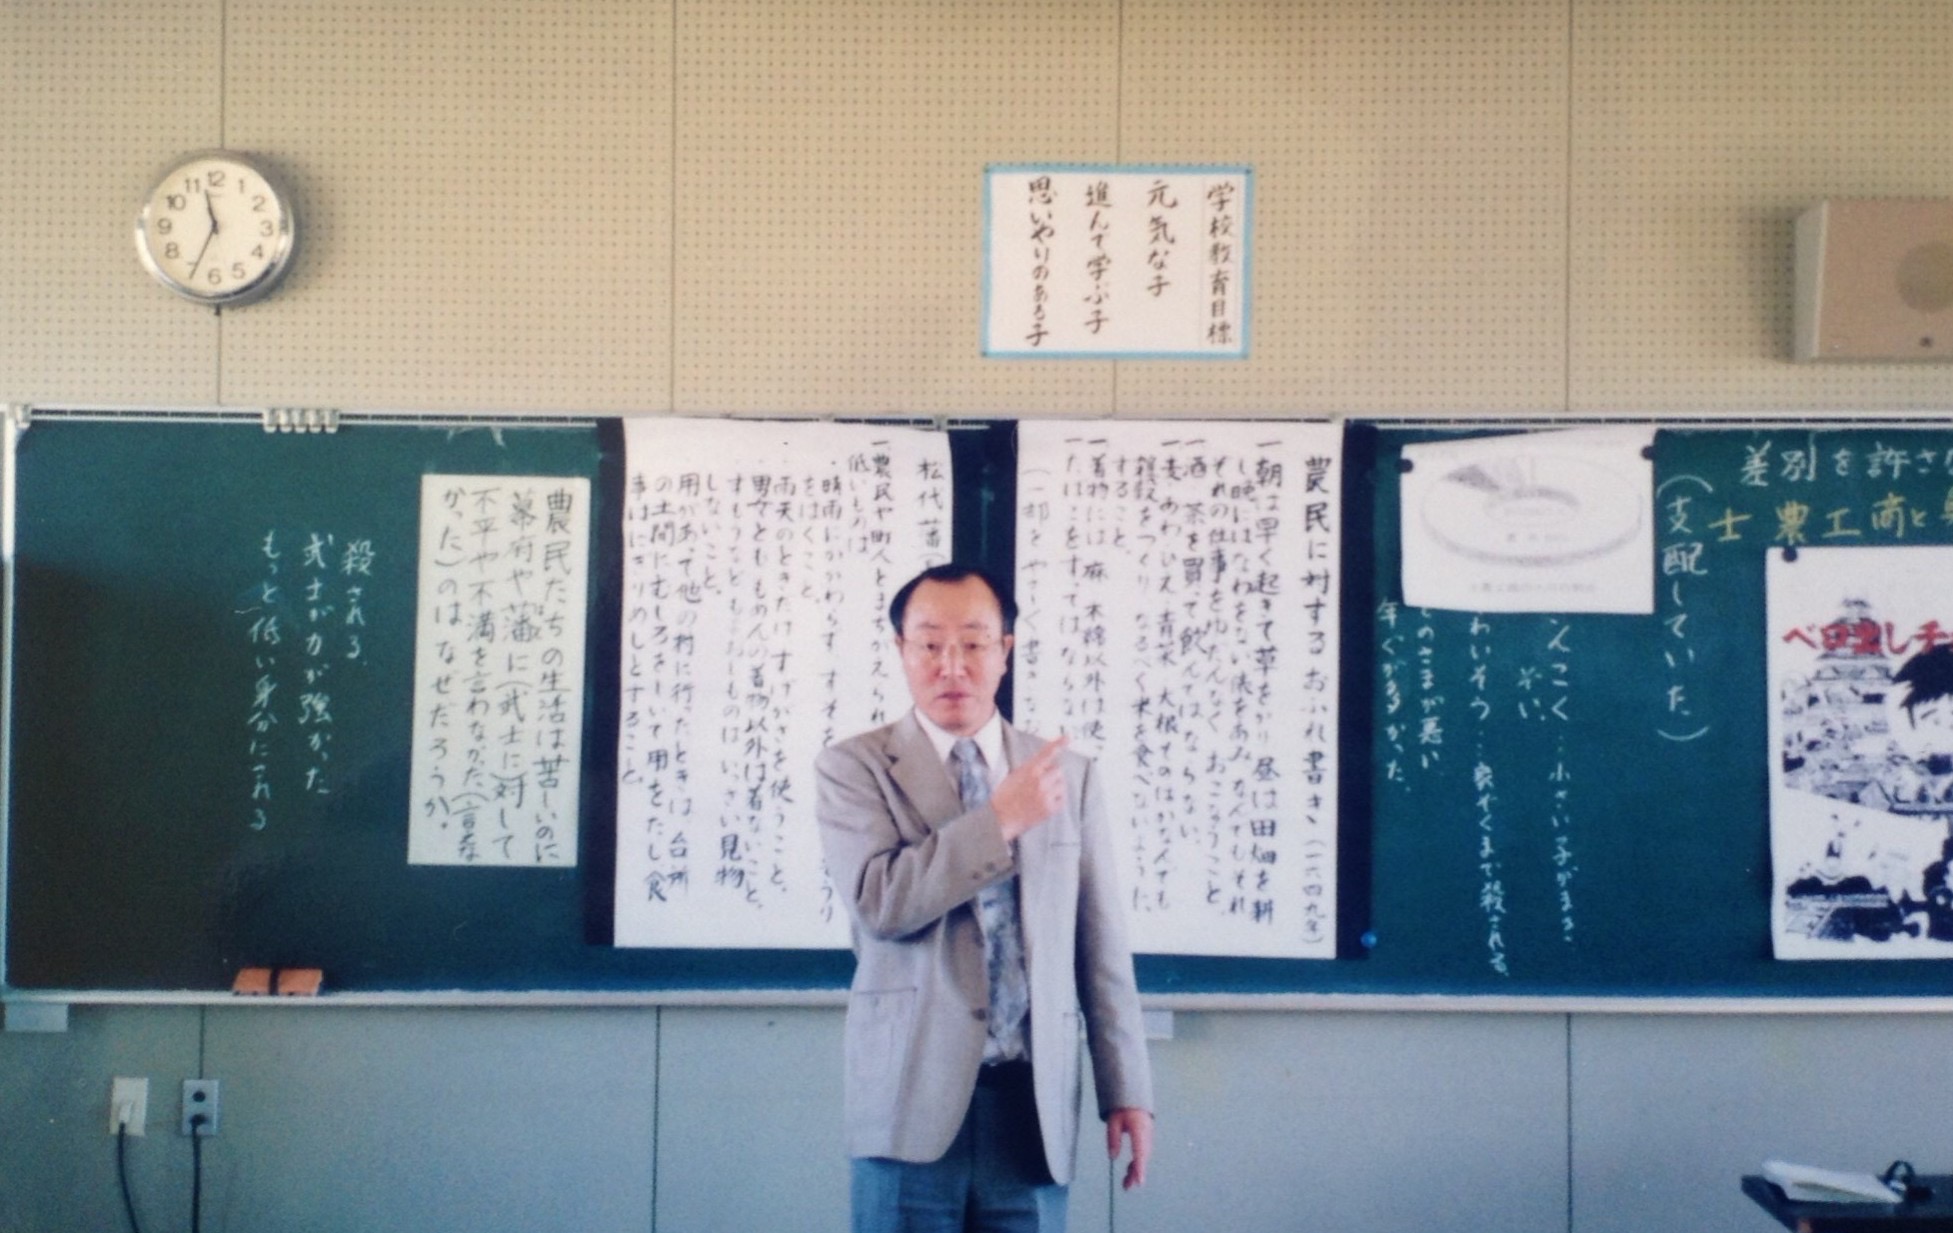 学校教育目標
元気な子
進んで学ぶ子
思いやりのある子
差別を許さ
士農工商と
(支配していた)
ベロ出しチ
農民に対するおふれ書き(一六四九年)
一朝は早く起きて草をかり 昼は田畑を耕
し晩にはなわをない俵をあみ なんでもそれ
ぞれの仕事をゆだんなく おこなうこと。
一酒 茶を買って飲んではならない。
一麦 あわ ひえ 青菜 大根 そのほかなんでも
雑穀をつくり なるべく米を食べないように
すること。
一着物には 麻 木綿以外は使
一たばこをすってはならない
松代藩
一農民や町人とまちがえられ
低いものは
・晴雨にかかわらず
をはくこと。
・雨天のときたけすげがさを使うこと。
・男女とももめんの着物以外は着ないこと。
・すもうなど もよおしものは いっさい見物
しないこと。
・用があって他の村に行ったときは 台所
の土間にむしろをしいて用をたし 食
事はにぎりめしとすること。
農民たちの生活は苦しいのに
幕府や藩に(武士に)対して
不平や不満を言わなかった(言えな
かった)のは なぜだろうか。
殺される。
武士が力が強かった
もっと低い身分にされる
小さい子がまき
良ぞくまで殺される。
とのさまが悪い
年ぐが高かった。
12
1
2
3
5
6
8
9
10
11